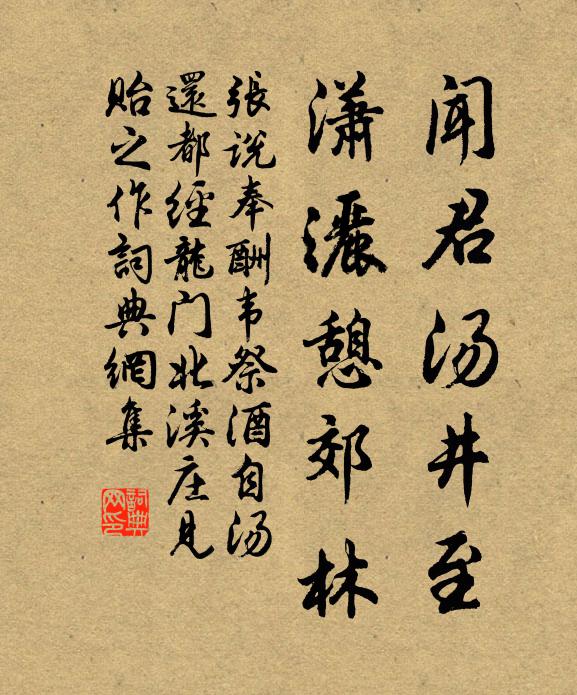 闻君汤井至
潇灑憩郊林
張说奉酬韦祭酒自汤
還都經龍门北溪庄見
贻之作詞典網集
詞典
网印